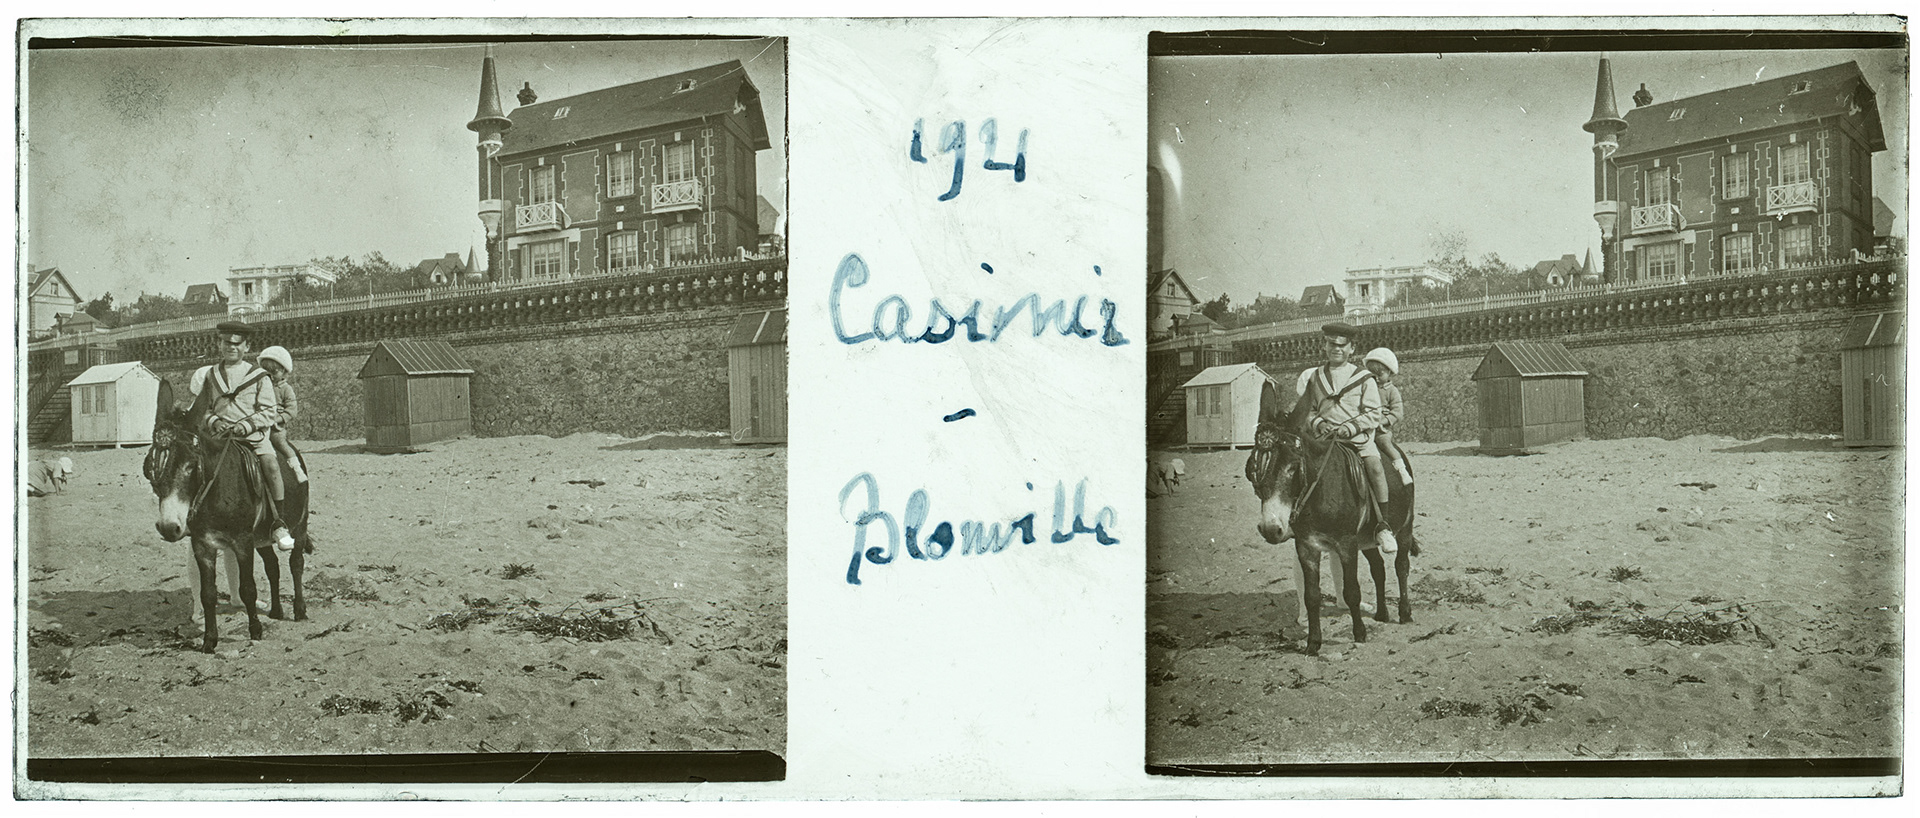 1921
Casimir
-
Blonville